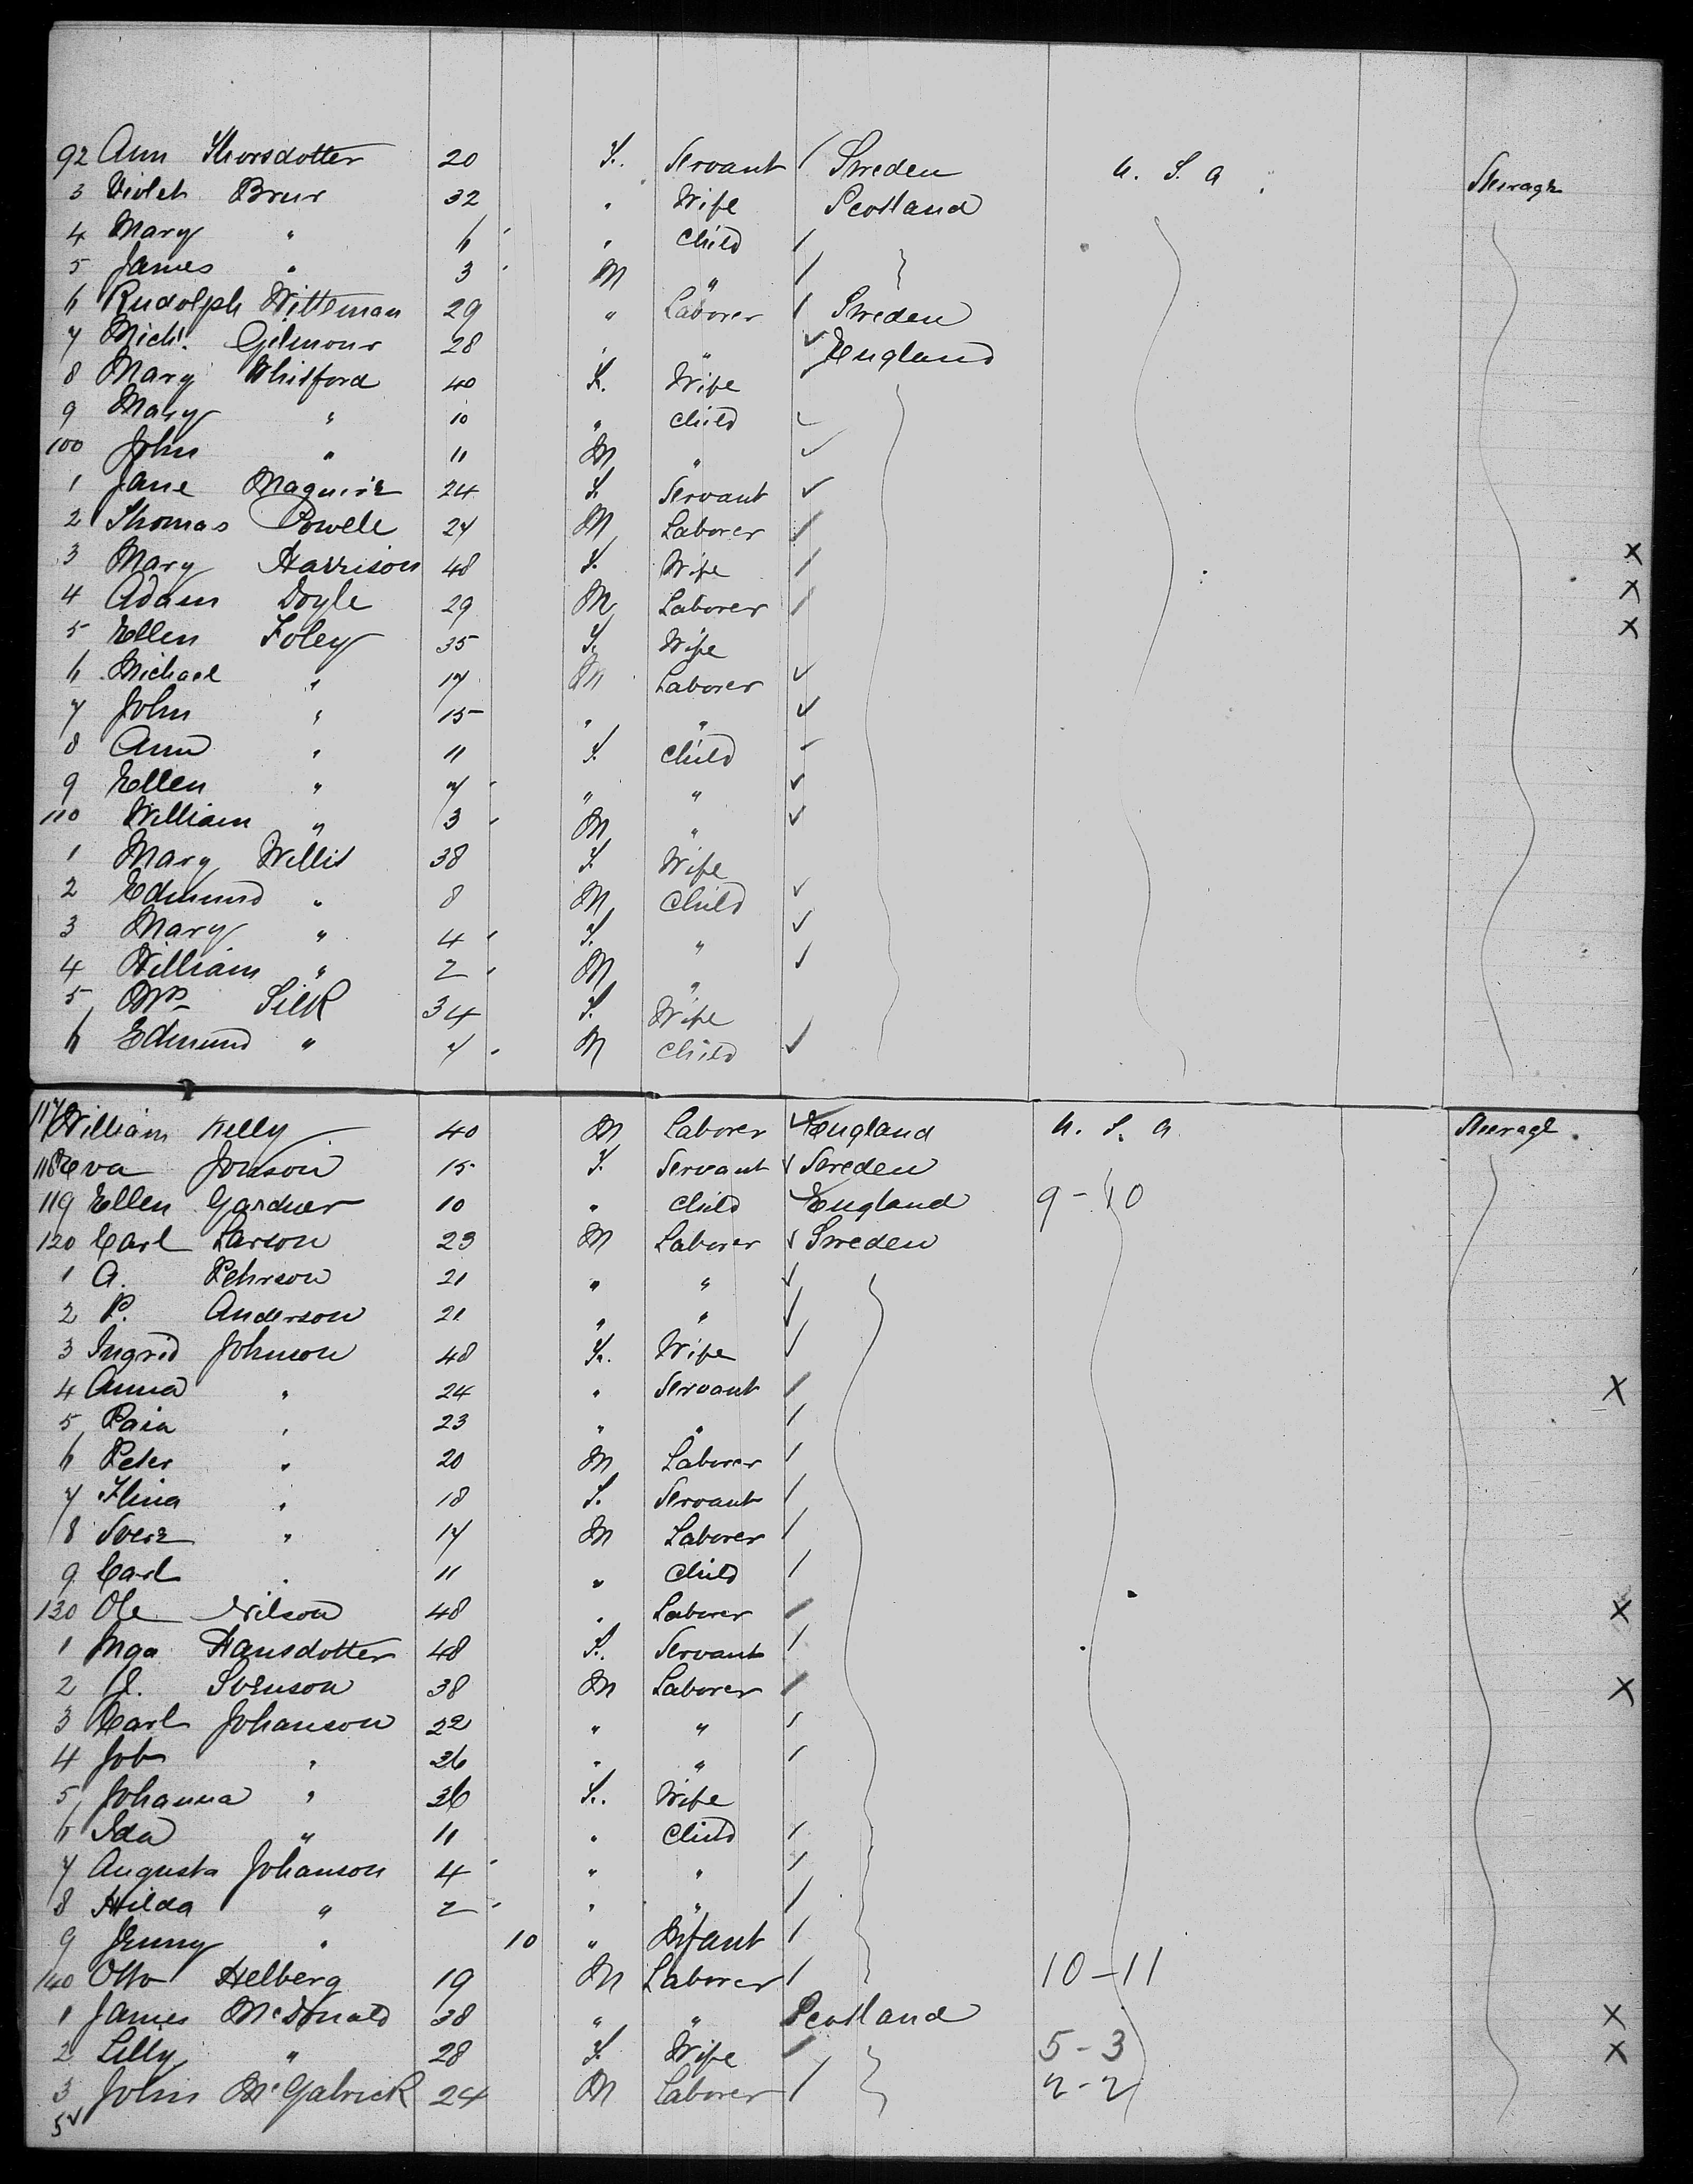 92 Ann Thorsdotter 20 F. Servant / Sweden U. S. A Steerage
3 Violet Brur 32 " Wife Scotland
4 Mary " 6 " Child /
5 James " 3 M " /
6 Rudolph Witteman 29 " Laborer / Sweden
7 Michl. Gilmour 28 " " ✓ England
8 Mary Whitford 40 F. Wife
9 Mary " 10 " Child ✓
100 John " 11 M " ✓
1 Jane Maguire 24 F. Servant ✓
2 Thomas Powell 27 M Laborer /
3 Mary Harrison 48 F. Wife / X
4 Adam Doyle 29 M Laborer / X
5 Ellen Foley 35 F. Wife X
6 Michael " 17 M Laborer ✓
7 John " 15 " " ✓
8 Ann " 11 F. Child ✓
9 Ellen " 7 " " ✓
110 William " 3 M " ✓
1 Mary Willis 38 F. Wife
2 Edmund " 8 M Child ✓
3 Mary " 4 F. " ✓
4 William " 2 M " ✓
5 Mrs Silk 34 F. Wife
6 Edmund " 7 M Child ✓
117 William Kelly 40 M Laborer ✓ England U. S. A Steerage
118 Eva Jonson 15 F. Servant ✓ Sweden
119 Ellen Gardner 10 " Child ✓ England 9-10
120 Carl Larson 23 M Laborer ✓ Sweden
1 A. Pehrson 21 " " ✓
2 P. Anderson 21 " " ✓
3 Ingrid Johnson 48 F. Wife ✓
4 Anna " 24 " Servant / X
5 Paia " 23 " " /
6 Peter " 20 M Laborer /
7 " 18 F. Servant /
8 " 17 M Laborer /
9 Carl " 11 " Child /
130 Ole Nilson 48 " Laborer / X
1 Inga Hansdotter 48 F. Servant /
2 J. Svenson 38 M Laborer / X
3 Carl Johanson 22 " " /
4 Job " 36 " " /
5 Johanna " 36 F. Wife
6 Ida " 11 " Child /
7 Augusta Johanson 4 " " /
8 Hilda " 2 " " /
9 Jenny " 10 " Infant /
140 Otto Helberg 19 M Laborer / 10-11
1 James McDonald 38 " " Scotland X
2 Lilly " 28 F. Wife / 5-3 X
3 John McGalrick 24 M Laborer / 2-2